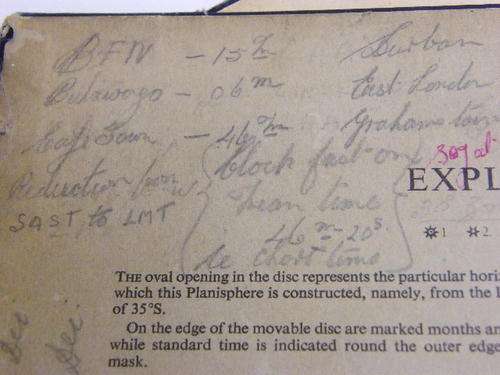 BFN - 15m Durban
Bulawayo - 06m East London
Cape Town - 46m Grahamstown
Reduction from (Clock fast on
SAST to LMT mean time
46m 20s
ie short time
EXPL
1 2.
THE oval opening in the disc represents the particular hori
which this Planisphere is constructed, namely, from the l
of 35°S.
On the edge of the movable disc are marked months an
while standard time is indicated round the outer edge
mask.
Dec
Dec